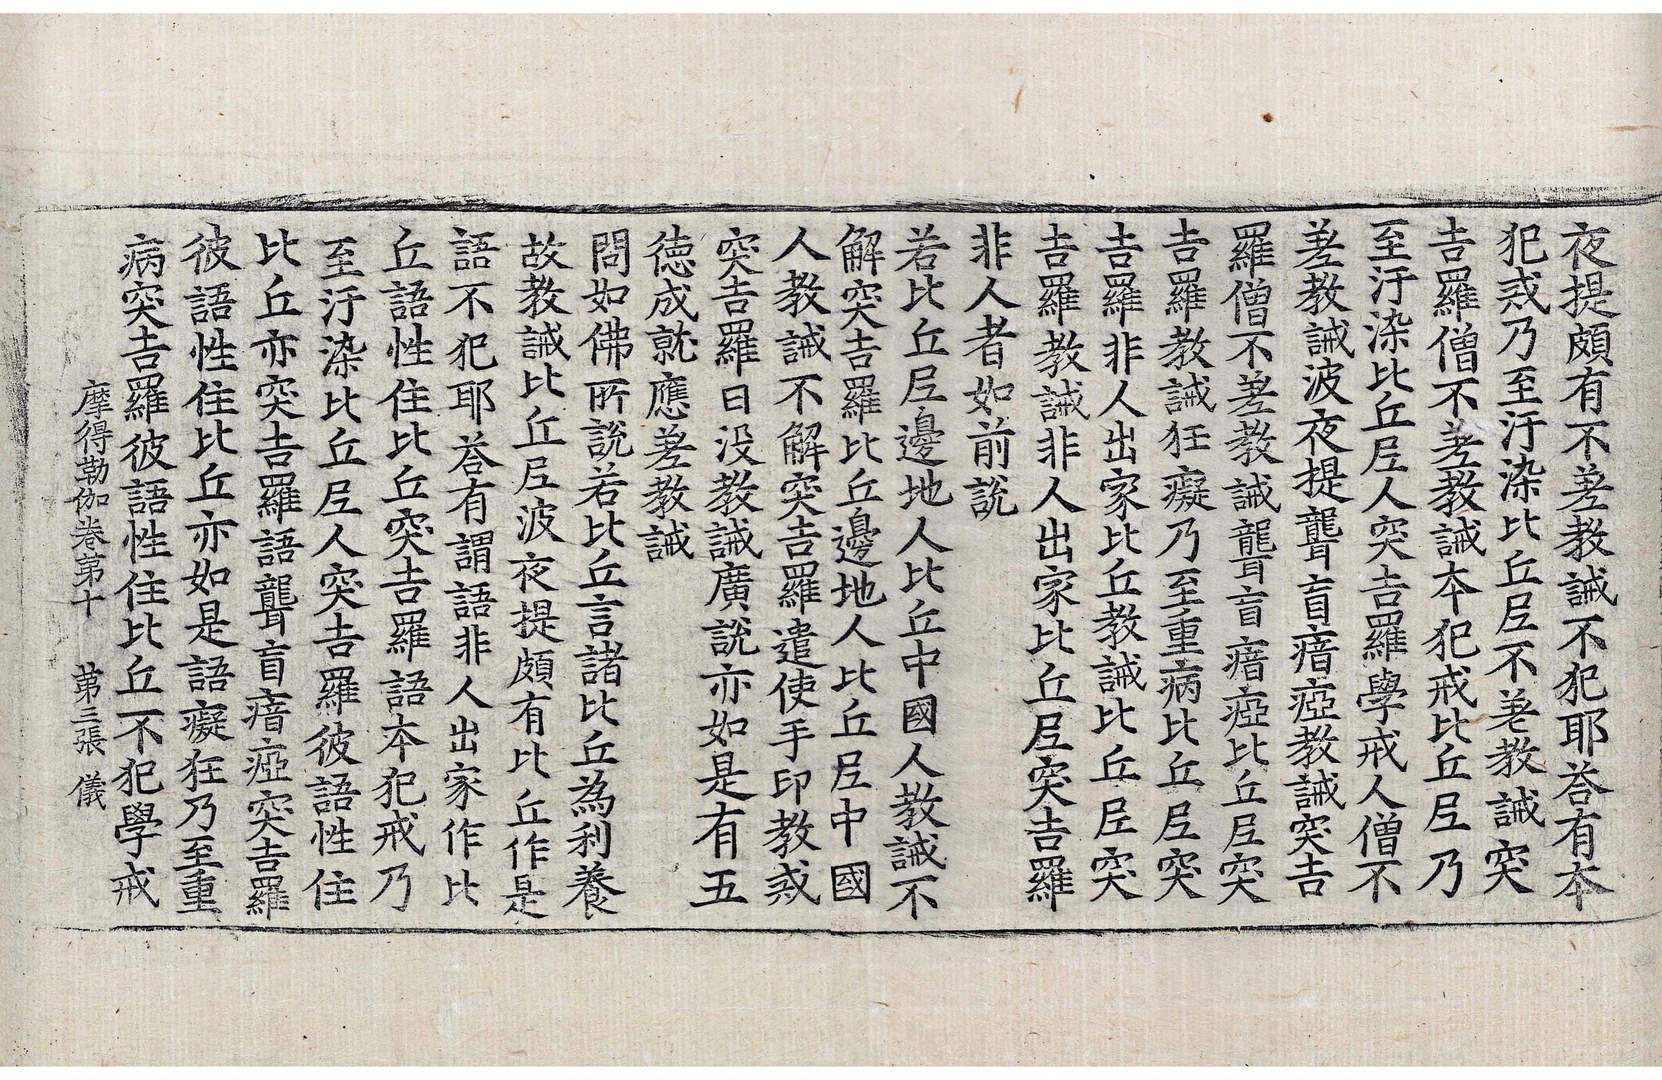 夜提頗有不差教誡不犯耶荅有本
犯戒乃至汙染比丘尼不差教誡突
吉羅僧不差教誡本犯戒比丘尼乃
至汙染比丘尼人突吉羅學戒人僧不
差教誡波夜提聾盲瘖瘂教誡突吉
羅僧不差教誡聾盲瘖瘂比丘尼突
吉羅教誡狂癡乃至重病比丘尼突
吉羅非人出家比丘教誡比丘尼突
吉羅教誡非人出家比丘尼突吉羅
非人者如前說
若比丘尼邊地人比丘中國人教誡不
解突吉羅比丘邊地人比丘尼中國
人教誡不解突吉羅遣使手印教戒
突吉羅日没教誡廣說亦如是有五
徳成就應差教誡
問如佛所說若比丘言諸比丘為利養
故教誡比丘尼波夜提頗有比丘作是
語不犯耶荅有謂語非人出家作比
丘語性住比丘突吉羅語本犯戒乃
至汙染比丘尼人突吉羅彼語性住
比丘亦突吉羅語聾盲瘖瘂突吉羅
彼語性住比丘亦如是語癡狂乃至重
病突吉羅彼語性住比丘不犯學戒
摩得勒伽卷第十 第三張 儀